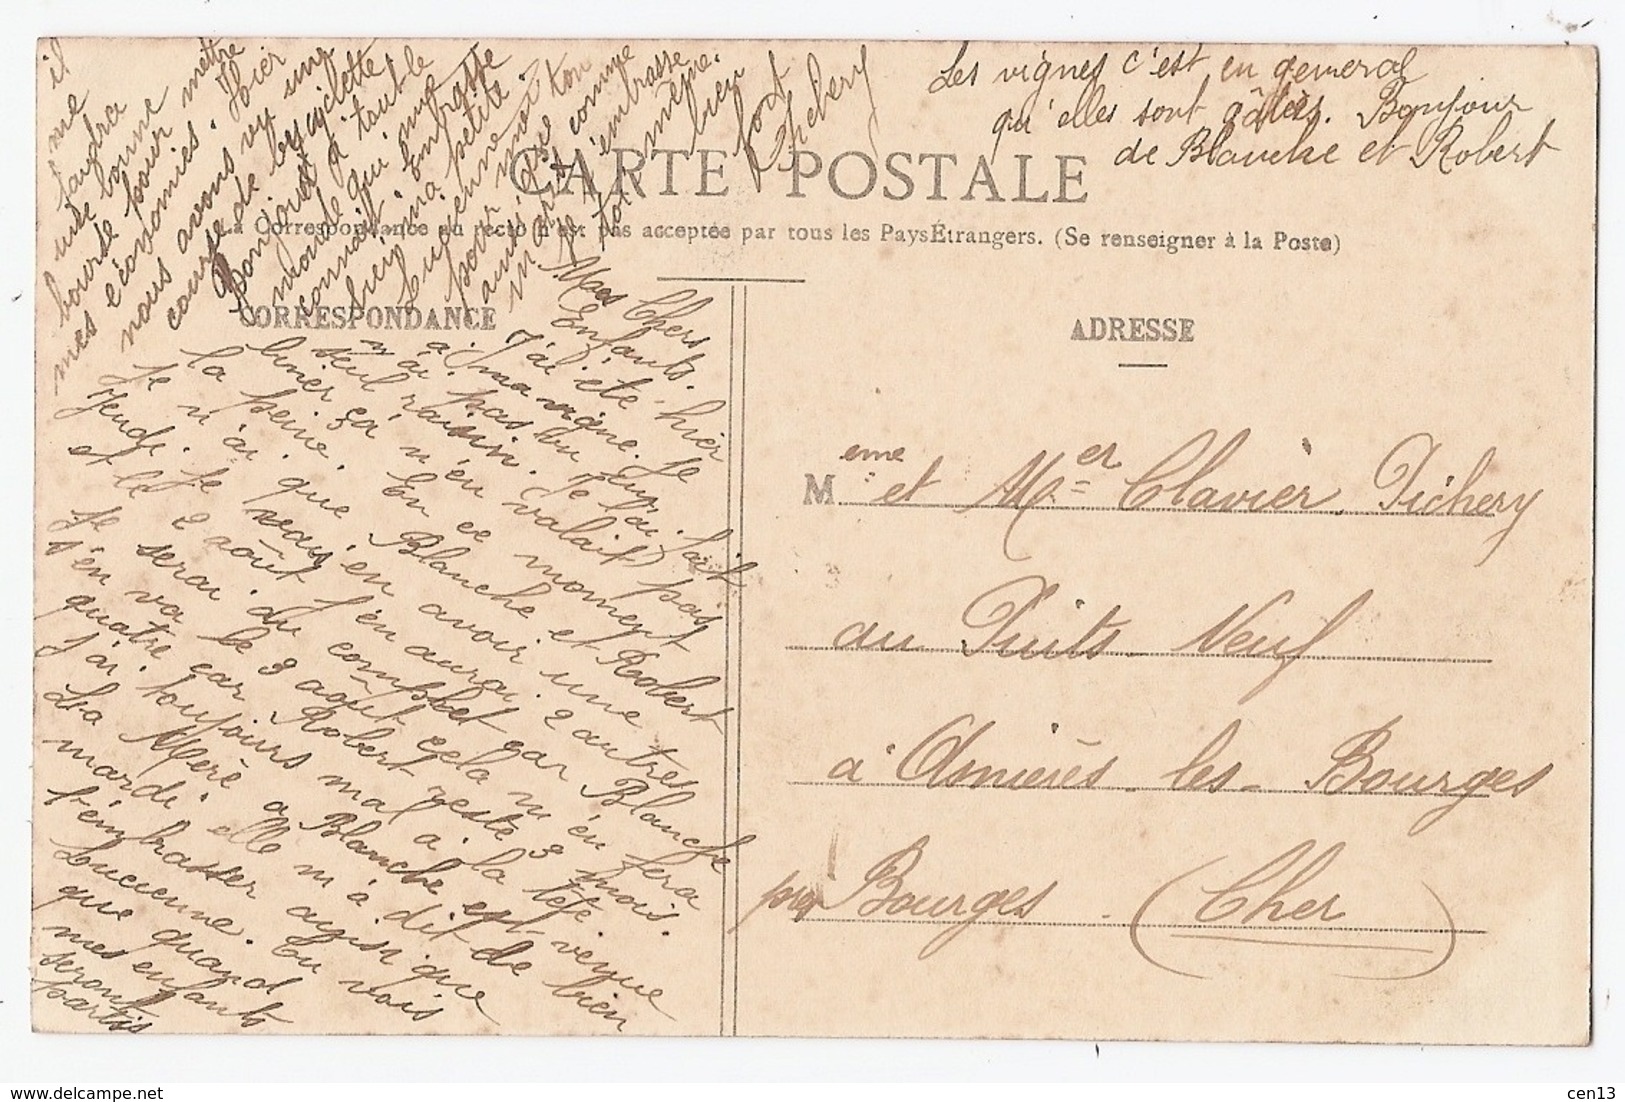 Mes Chers
Enfants.
J'ai été hier
à ma vigne. Je
n'ai pas vu un
seul raisin. Je l'ai fait
biner ça n'en valait pas
la peine. En ce moment
je n'ai que Blanche et Robert
Jeudi. Je vais en avoir une
et le 2 août j'en aurai 2 autres
Je serai au complet car Blanche
s'en va le 3 août cela m'en fera
quatre car Robert reste 3 mois.
J'ai toujours mal à la tête
La Mère à Blanche est venue
mardi elle m'a dit de bien
t'embrasser ainsi que
Lucienne. Tu vois
que quand
mes enfants
seront
partis
il
me
faudra
une bonne
bourse pour mettre
mes économies. Hier
nous avons vu une
course de bicyclette
Bonjour à tout le
monde qui me
connait. Embrasse
bien ma petite
Lucienne
pour moi
ainsi que ton
mari comme
je t'embrasse
toi même.
bien
fort
Pichery
Les vignes c'est en general
qu'elles sont gâtées. Bonjour
de Blanche et Robert
CARTE POSTALE
La Correspondance au recto n'est pas acceptée par tous les Pays Étrangers. (Se renseigner à la Poste)
CORRESPONDANCE
ADRESSE
Meme et Mer Clavier Pichery
au Puits-Neuf
à Asnières-les-Bourges
près Bourges. (Cher)
cen13